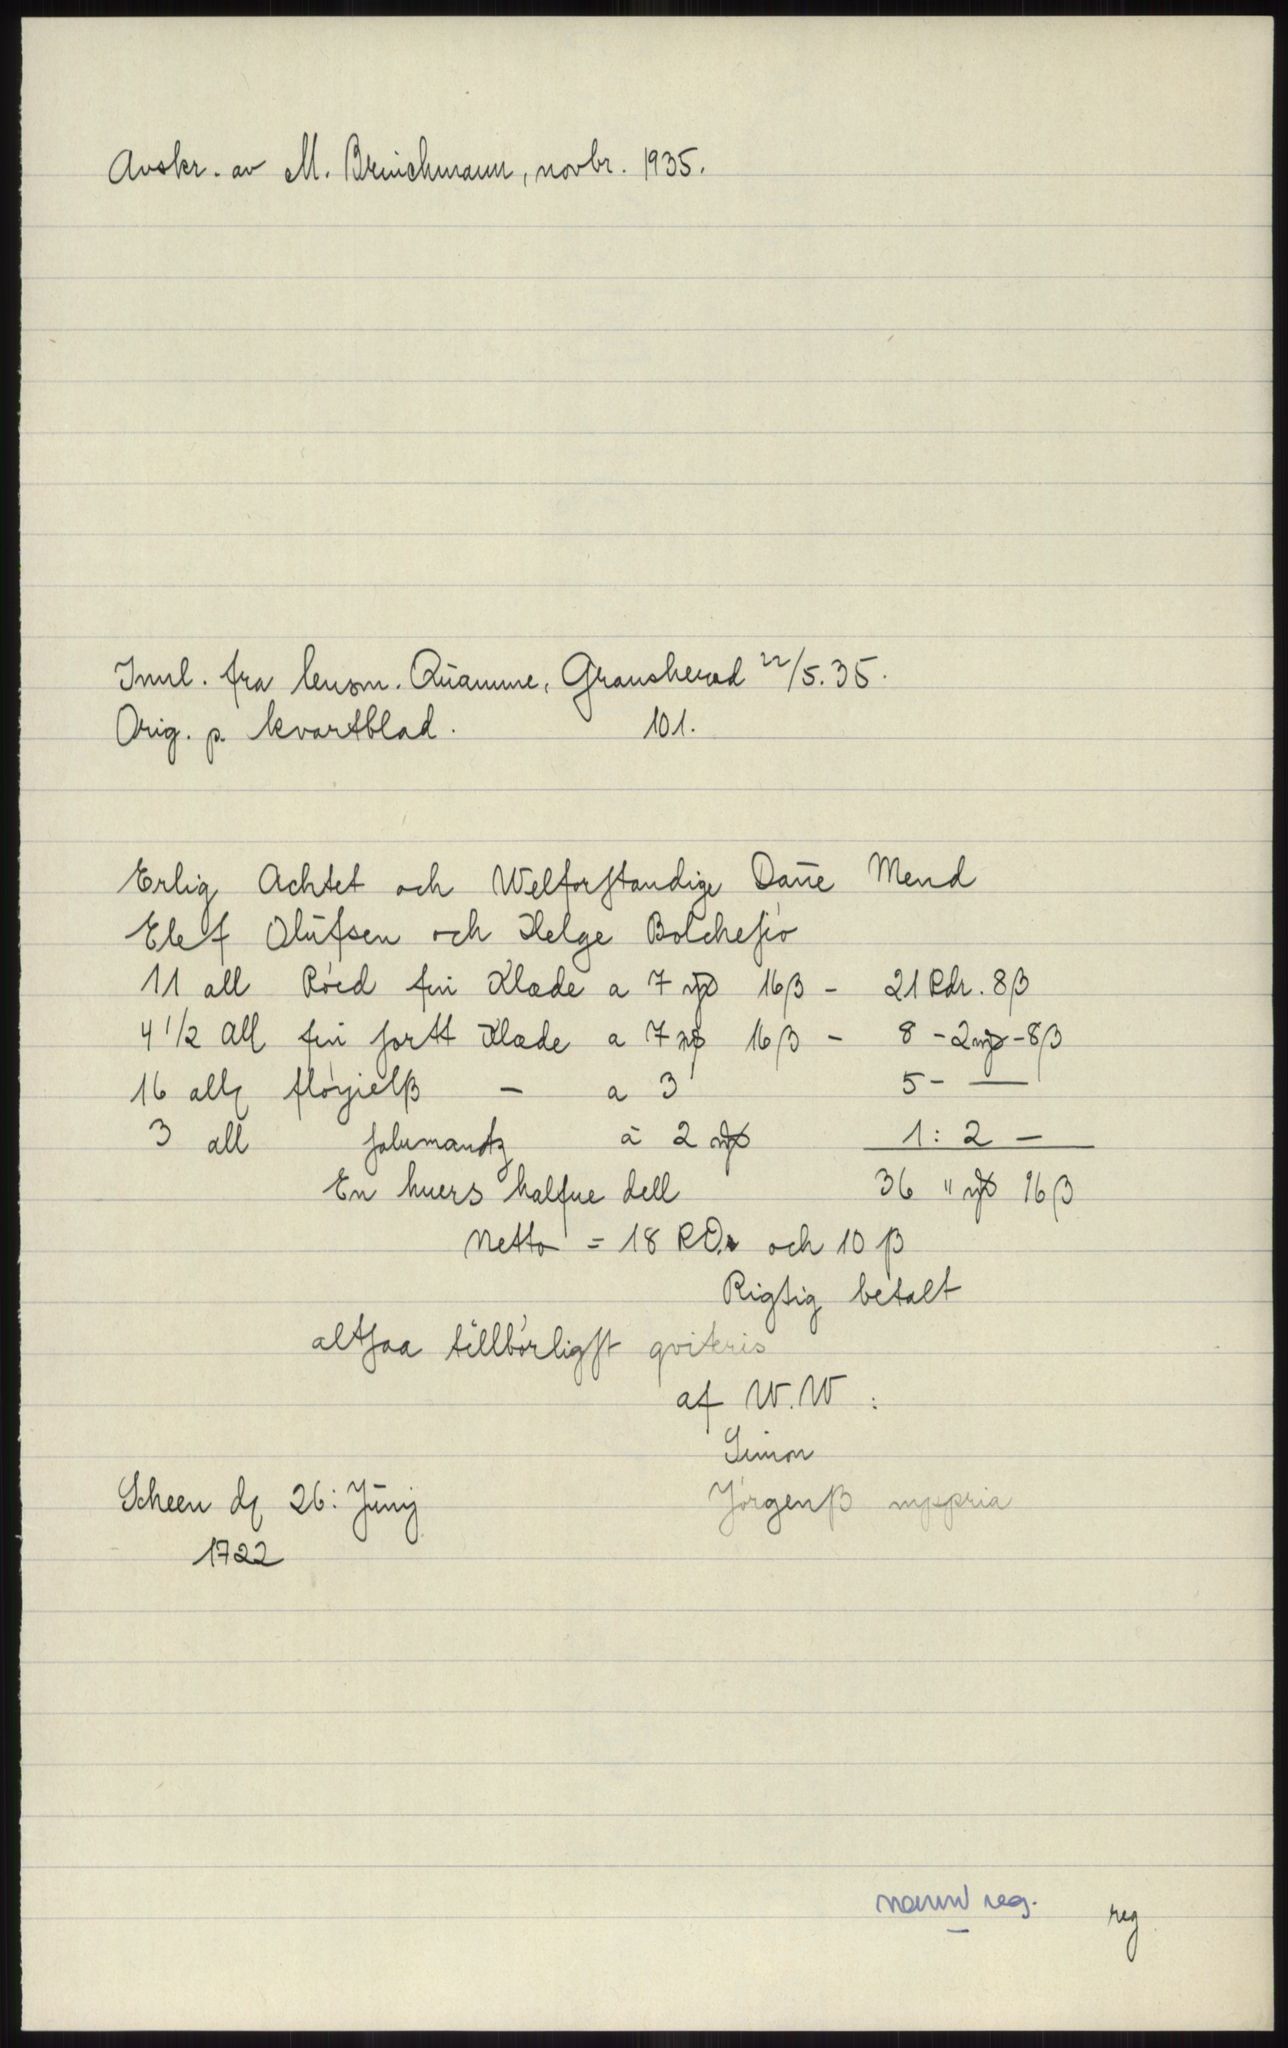 Avskr. av M. Brinchmann, novbr. 1935.
Innl. fra lensm. Quamme, Gransherad 22/5. 35.
Orig. p. kvartblad. 101.
Erlig Achtet och Welforstandige Dañe Mend
Elef Olufsen och Helge Bolchesiö
11 all Röed fin Klæde a 7 mƒ 16 β - 21 Rdr. 8 β
4 1/2 All fin sortt Klæde a 7 mƒ 16 β - 8 - 2 mƒ - 8 β
16 all flöyielß - a 3 5 - —
3 all à 2 mƒ 1 : 2 —
En huers halfue dell 36 " mƒ 16 β
Netto = 18 RD. och 10 β
Rigtig betalt
altsaa tillbörligst qviteris
af W. W :
Simon
Scheen d 26: Junij Jörgenß mppria
1722
navn reg. reg